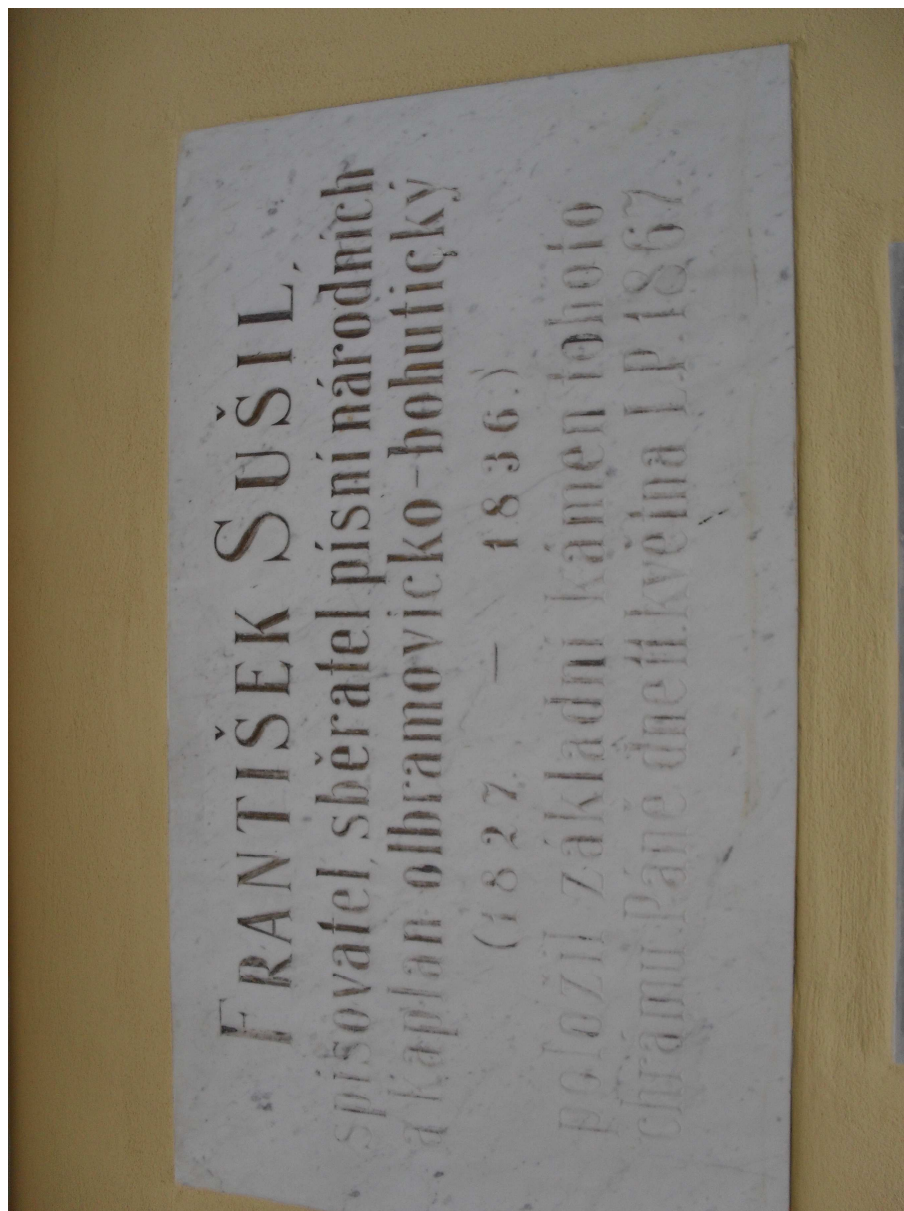 FRANTIŠEK SUŠIL,
spisovatel, sběratel písní národních
a kaplan olbramovicko-bohutický
(1827. — 1836.)
položil základní kámen tohoto
chrámu Páně dne 11. května L.P. 1867.